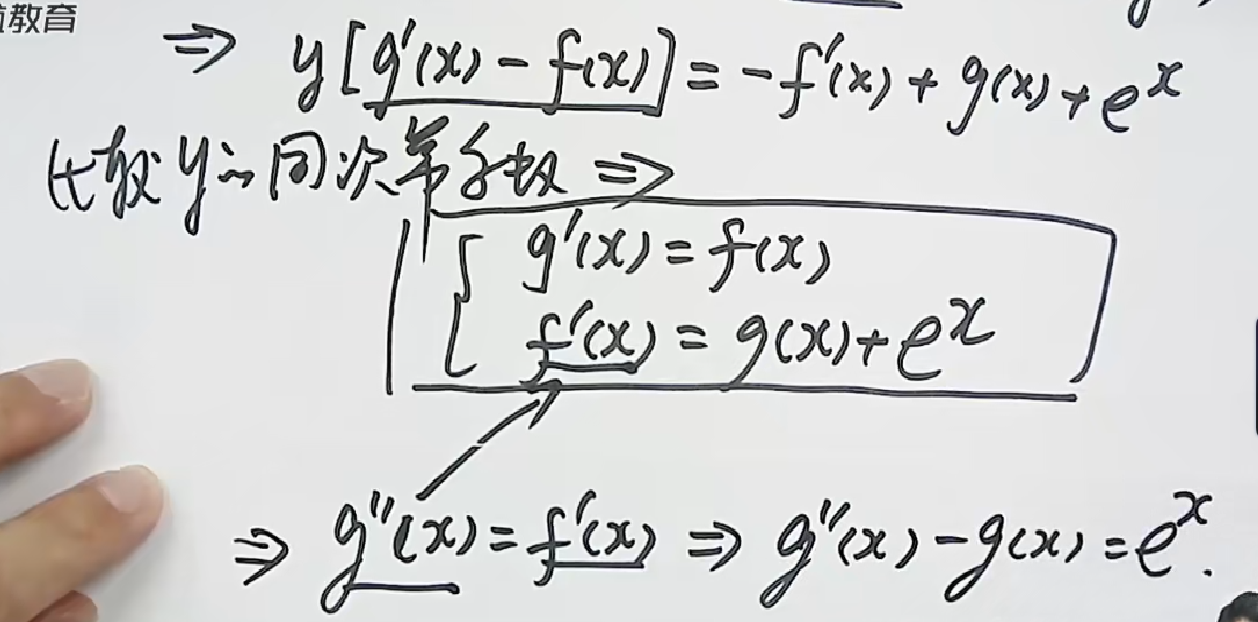 教育
⇒ y[g'(x) - f(x)] = -f'(x) + g(x) + e^x
比较 y 的同次幂系数 ⇒
g'(x) = f(x)
f'(x) = g(x) + e^x
⇒ g''(x) = f'(x) ⇒ g''(x) - g(x) = e^x.